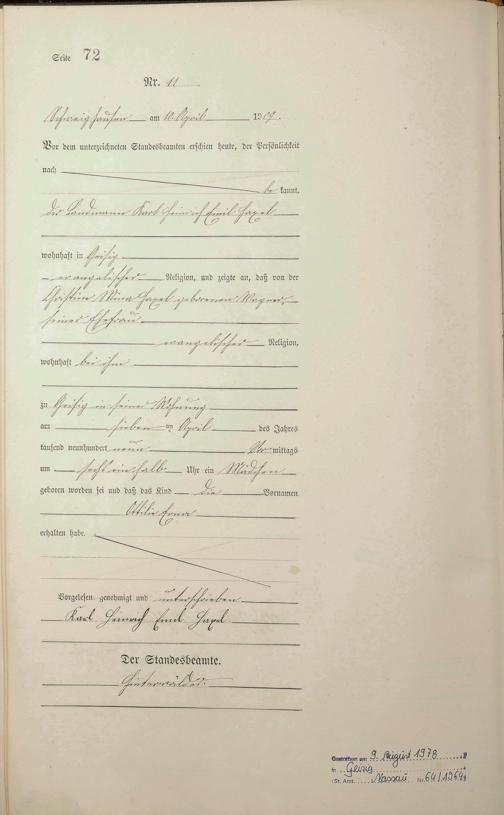 Seite 72
Nr. 11
Schweighausen am 10. April 1909.
Vor dem unterzeichneten Standesbeamten erschien heute, der Persönlichkeit
nach
be kannt,
der Landmann Karl Heinrich Emil Hexel
wohnhaft in Geisig
evangelischer Religion, und zeigte an, daß von der
Christine Mina Hexel geborenen Wagner,
seiner Ehefrau
evangelischer Religion,
wohnhaft bei ihm
zu Geisig in seiner Wohnung
am sieben ten April des Jahres
tausend neunhundert neun Vor mittags
um sechs ein halb Uhr ein Mädchen
geboren worden sei und daß das Kind die Vornamen
Ottilie Erna
erhalten habe.
Vorgelesen, genehmigt und unterschrieben
Karl Heinrich Emil
Der Standesbeamte.
Hinterwälder
Gestorben am 9. August 1978
in Geisig
(St. Amt Nassau Nr. 64/1964)